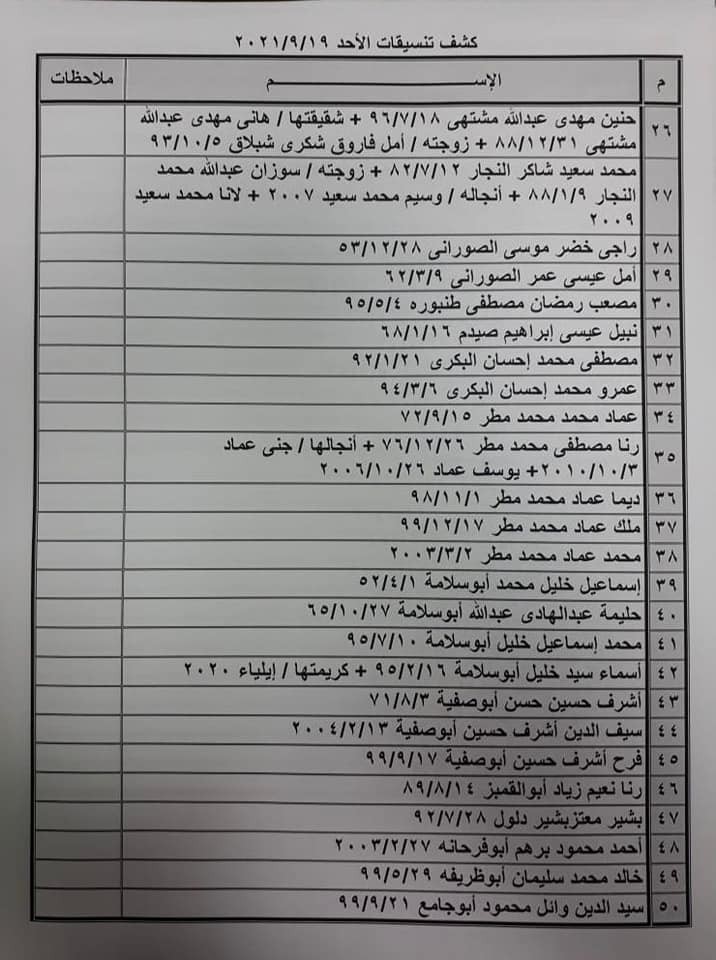 كشف تنسيقات الأحد ٢٠٢١/٩/١٩
م الإســــــــم ملاحظات
٢٦ حنين مهدى عبدالله مشتهى ٩٦/٧/١٨ + شقيقتها / هانى مهدى عبدالله
مشتهى ٨٨/١٢/٣١ + زوجته / أمل فاروق شكرى شبلاق ٩٣/١٠/٥
٢٧ محمد سعيد شاكر النجار ٨٢/٧/١٢ + زوجته / سوزان عبدالله محمد
النجار ٨٨/١/٩ + أنجاله / وسيم محمد سعيد ٢٠٠٧ + لانا محمد سعيد
٢٠٠٩
٢٨ راجى خضر موسى الصورانى ٥٣/١٢/٢٨
٢٩ أمل عيسى عمر الصورانى ٦٢/٣/٩
٣٠ مصعب رمضان مصطفى طنبوره ٩٥/٥/٤
٣١ نبيل عيسى إبراهيم صيدم ٦٨/١/١٦
٣٢ مصطفى محمد إحسان البكرى ٩٢/١/٢١
٣٣ عمرو محمد إحسان البكرى ٩٤/٣/٦
٣٤ عماد محمد محمد مطر ٧٢/٩/١٥
٣٥ رنا مصطفى محمد مطر ٧٦/١٢/٢٦ + أنجالها / جنى عماد
٢٠١٠/١٠/٣+ يوسف عماد ٢٠٠٦/١٠/٢٦
٣٦ ديما عماد محمد مطر ٩٨/١١/١
٣٧ ملك عماد محمد مطر ٩٩/١٢/١٧
٣٨ محمد عماد محمد مطر ٢٠٠٣/٣/٢
٣٩ إسماعيل خليل محمد أبوسلامة ٥٢/٤/١
٤٠ حليمة عبدالهادى عبدالله أبوسلامة ٦٥/١٠/٢٧
٤١ محمد إسماعيل خليل أبوسلامة ٩٥/٧/١٠
٤٢ أسماء سيد خليل أبوسلامة ٩٥/٢/١٦ + كريمتها / إيلياء ٢٠٢٠
٤٣ أشرف حسين حسن أبوصفية ٧١/٨/٣
٤٤ سيف الدين أشرف حسين أبوصفية ٢٠٠٤/٢/١٣
٤٥ فرح أشرف حسين أبوصفية ٩٩/٩/١٧
٤٦ رنا نعيم زياد أبوالقمبز ٨٩/٨/١٤
٤٧ بشير معتزبشير دلول ٩٢/٧/٢٨
٤٨ أحمد محمود برهم أبوفرحانه ٢٠٠٣/٢/٢٧
٤٩ خالد محمد سليمان أبوظريفه ٩٩/٥/٢٩
٥٠ سيد الدين وائل محمود أبوجامع ٩٩/٩/٢١